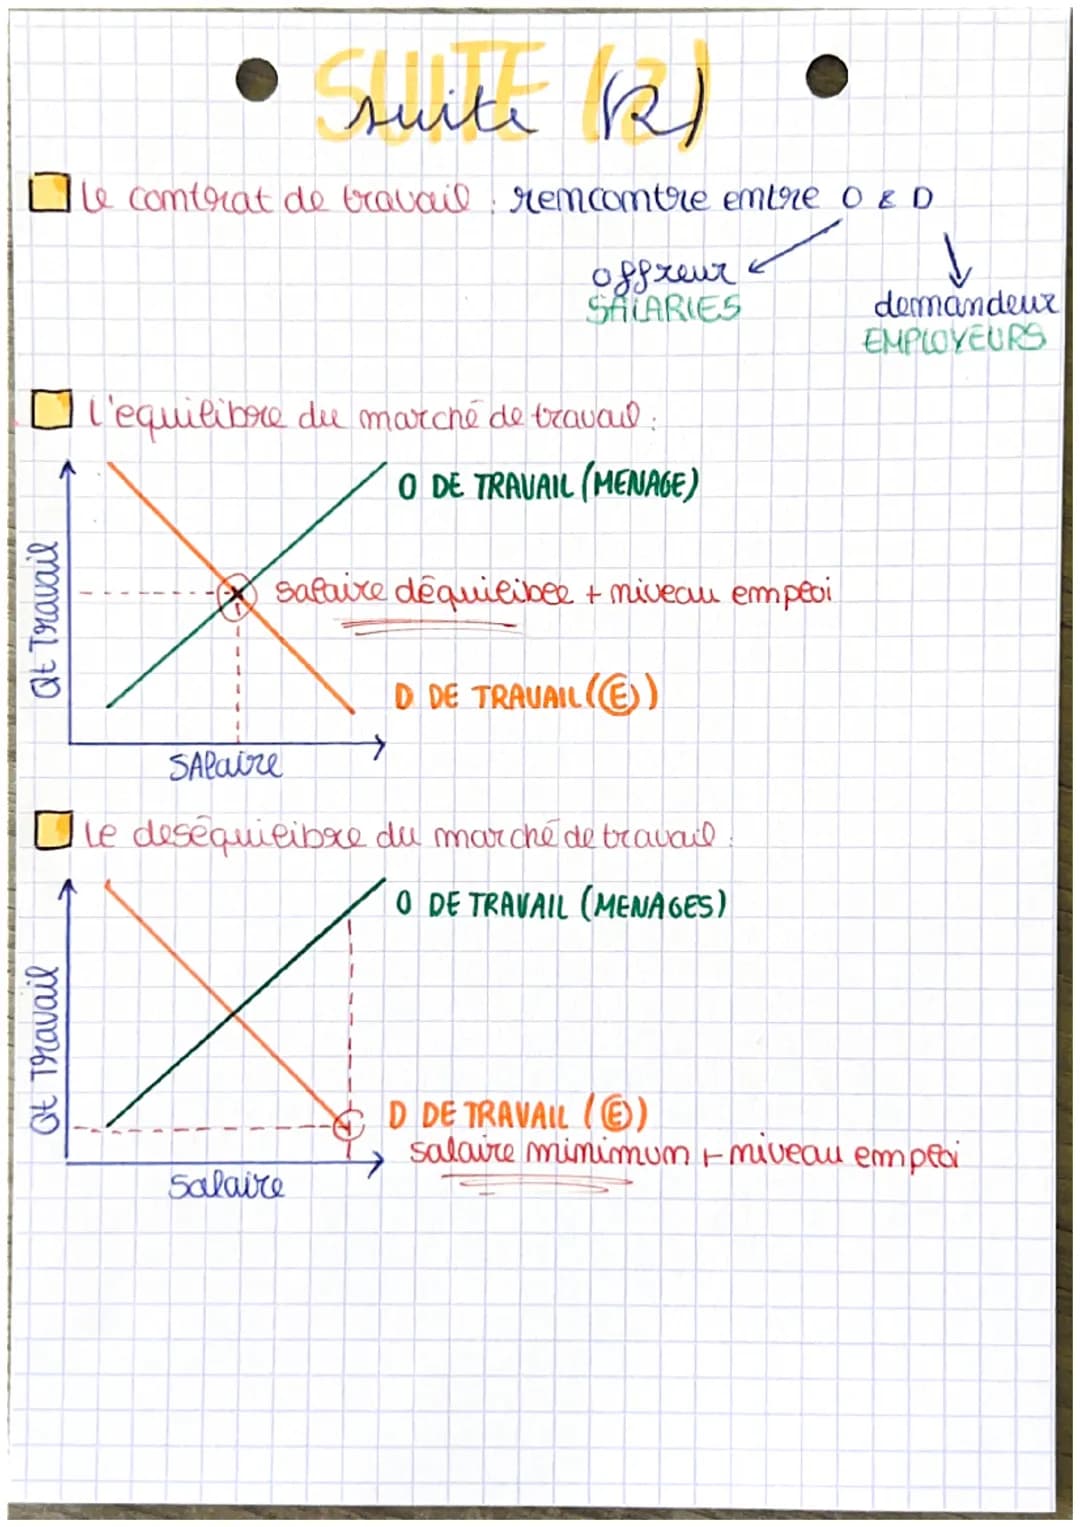 SUITE (2)
suite (2)
Le contrat de travail : rencontre entre O & D
offreur
SALARIES
demandeur
EMPLOYEURS
L'equilibre du marché de travail :
O DE TRAVAIL (MENAGE)
Qt Travail
salaire déquilibee + niveau emploi
D DE TRAVAIL (E)
SAlaire
Le deséquilibre du marché de travail :
O DE TRAVAIL (MENAGES)
Qt Travail
D DE TRAVAIL (E)
salaire minimum + niveau emploi
Salaire